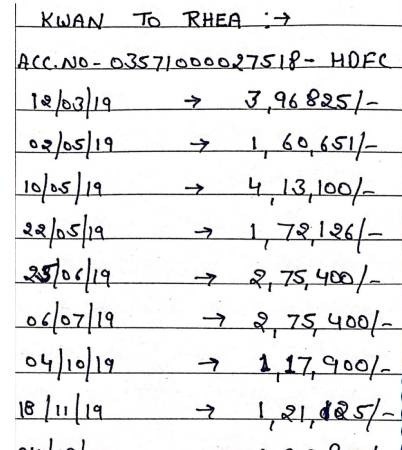 KWAN TO RHEA :→
ACC.NO - 03571000027518 - HDFC
12/03/19 → 3,96825/-
02/05/19 → 1,60,651/-
10/05/19 → 4,13,100/-
22/05/19 → 1,72,126/-
25/06/19 → 2,75,400/-
06/07/19 → 2,75,400/-
04/10/19 → 1,17,900/-
18/11/19 → 1,21,125/-